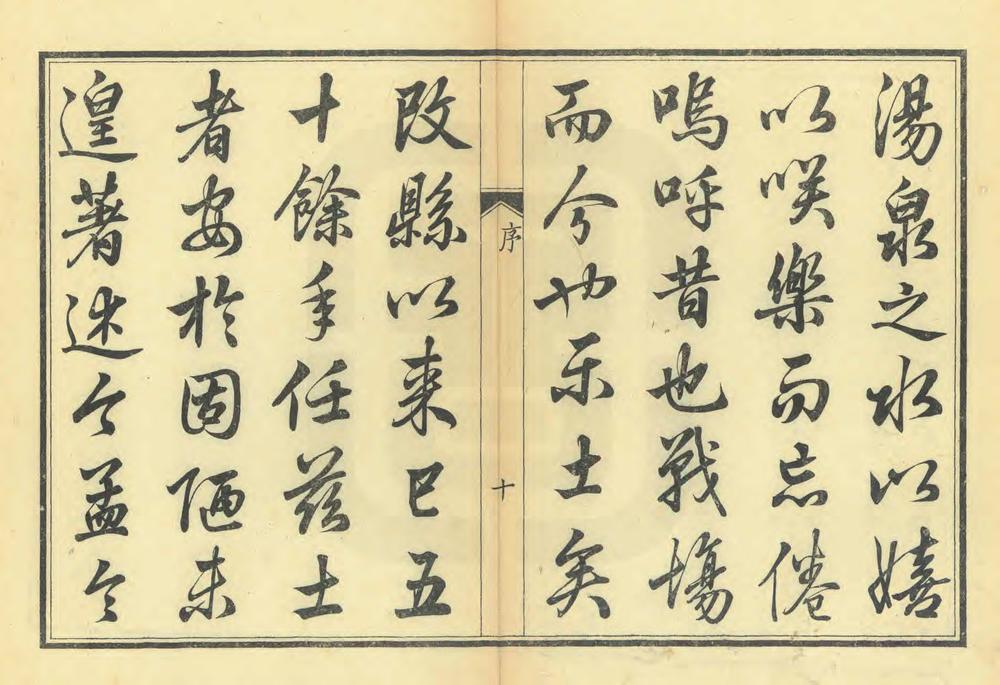 湯泉之水以嬉
以咲樂而忘倦
嗚呼昔也戰塲
而今也乐土矣
序
十
改縣以来已五
十餘年任兹士
者安於固陋未
遑著述今孟今